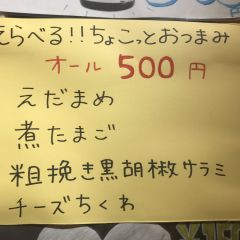 えらべる!!ちょこっとおつまみ
オール 500円
えだまめ
煮たまご
粗挽き黒胡椒サラミ
チーズちくわ